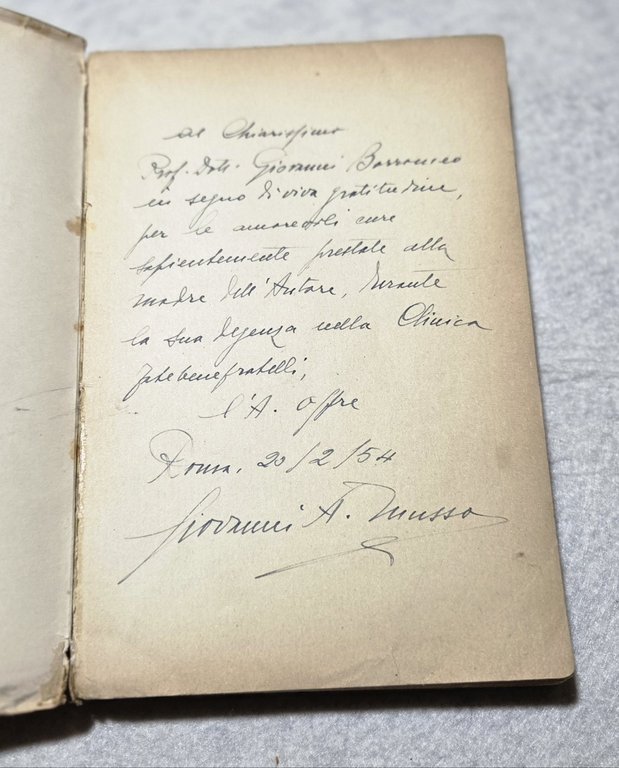 Al Chiarissimo
Prof. Dott. Giovanni Borromeo
in segno di viva gratitudine,
per le amorevoli cure
sapientemente prestate alla
madre dell'Autore, durante
la sua degenza nella Clinica
Fatebenefratelli,
l'A. offre
Roma, 20/2/54
Giovanni A. Musso